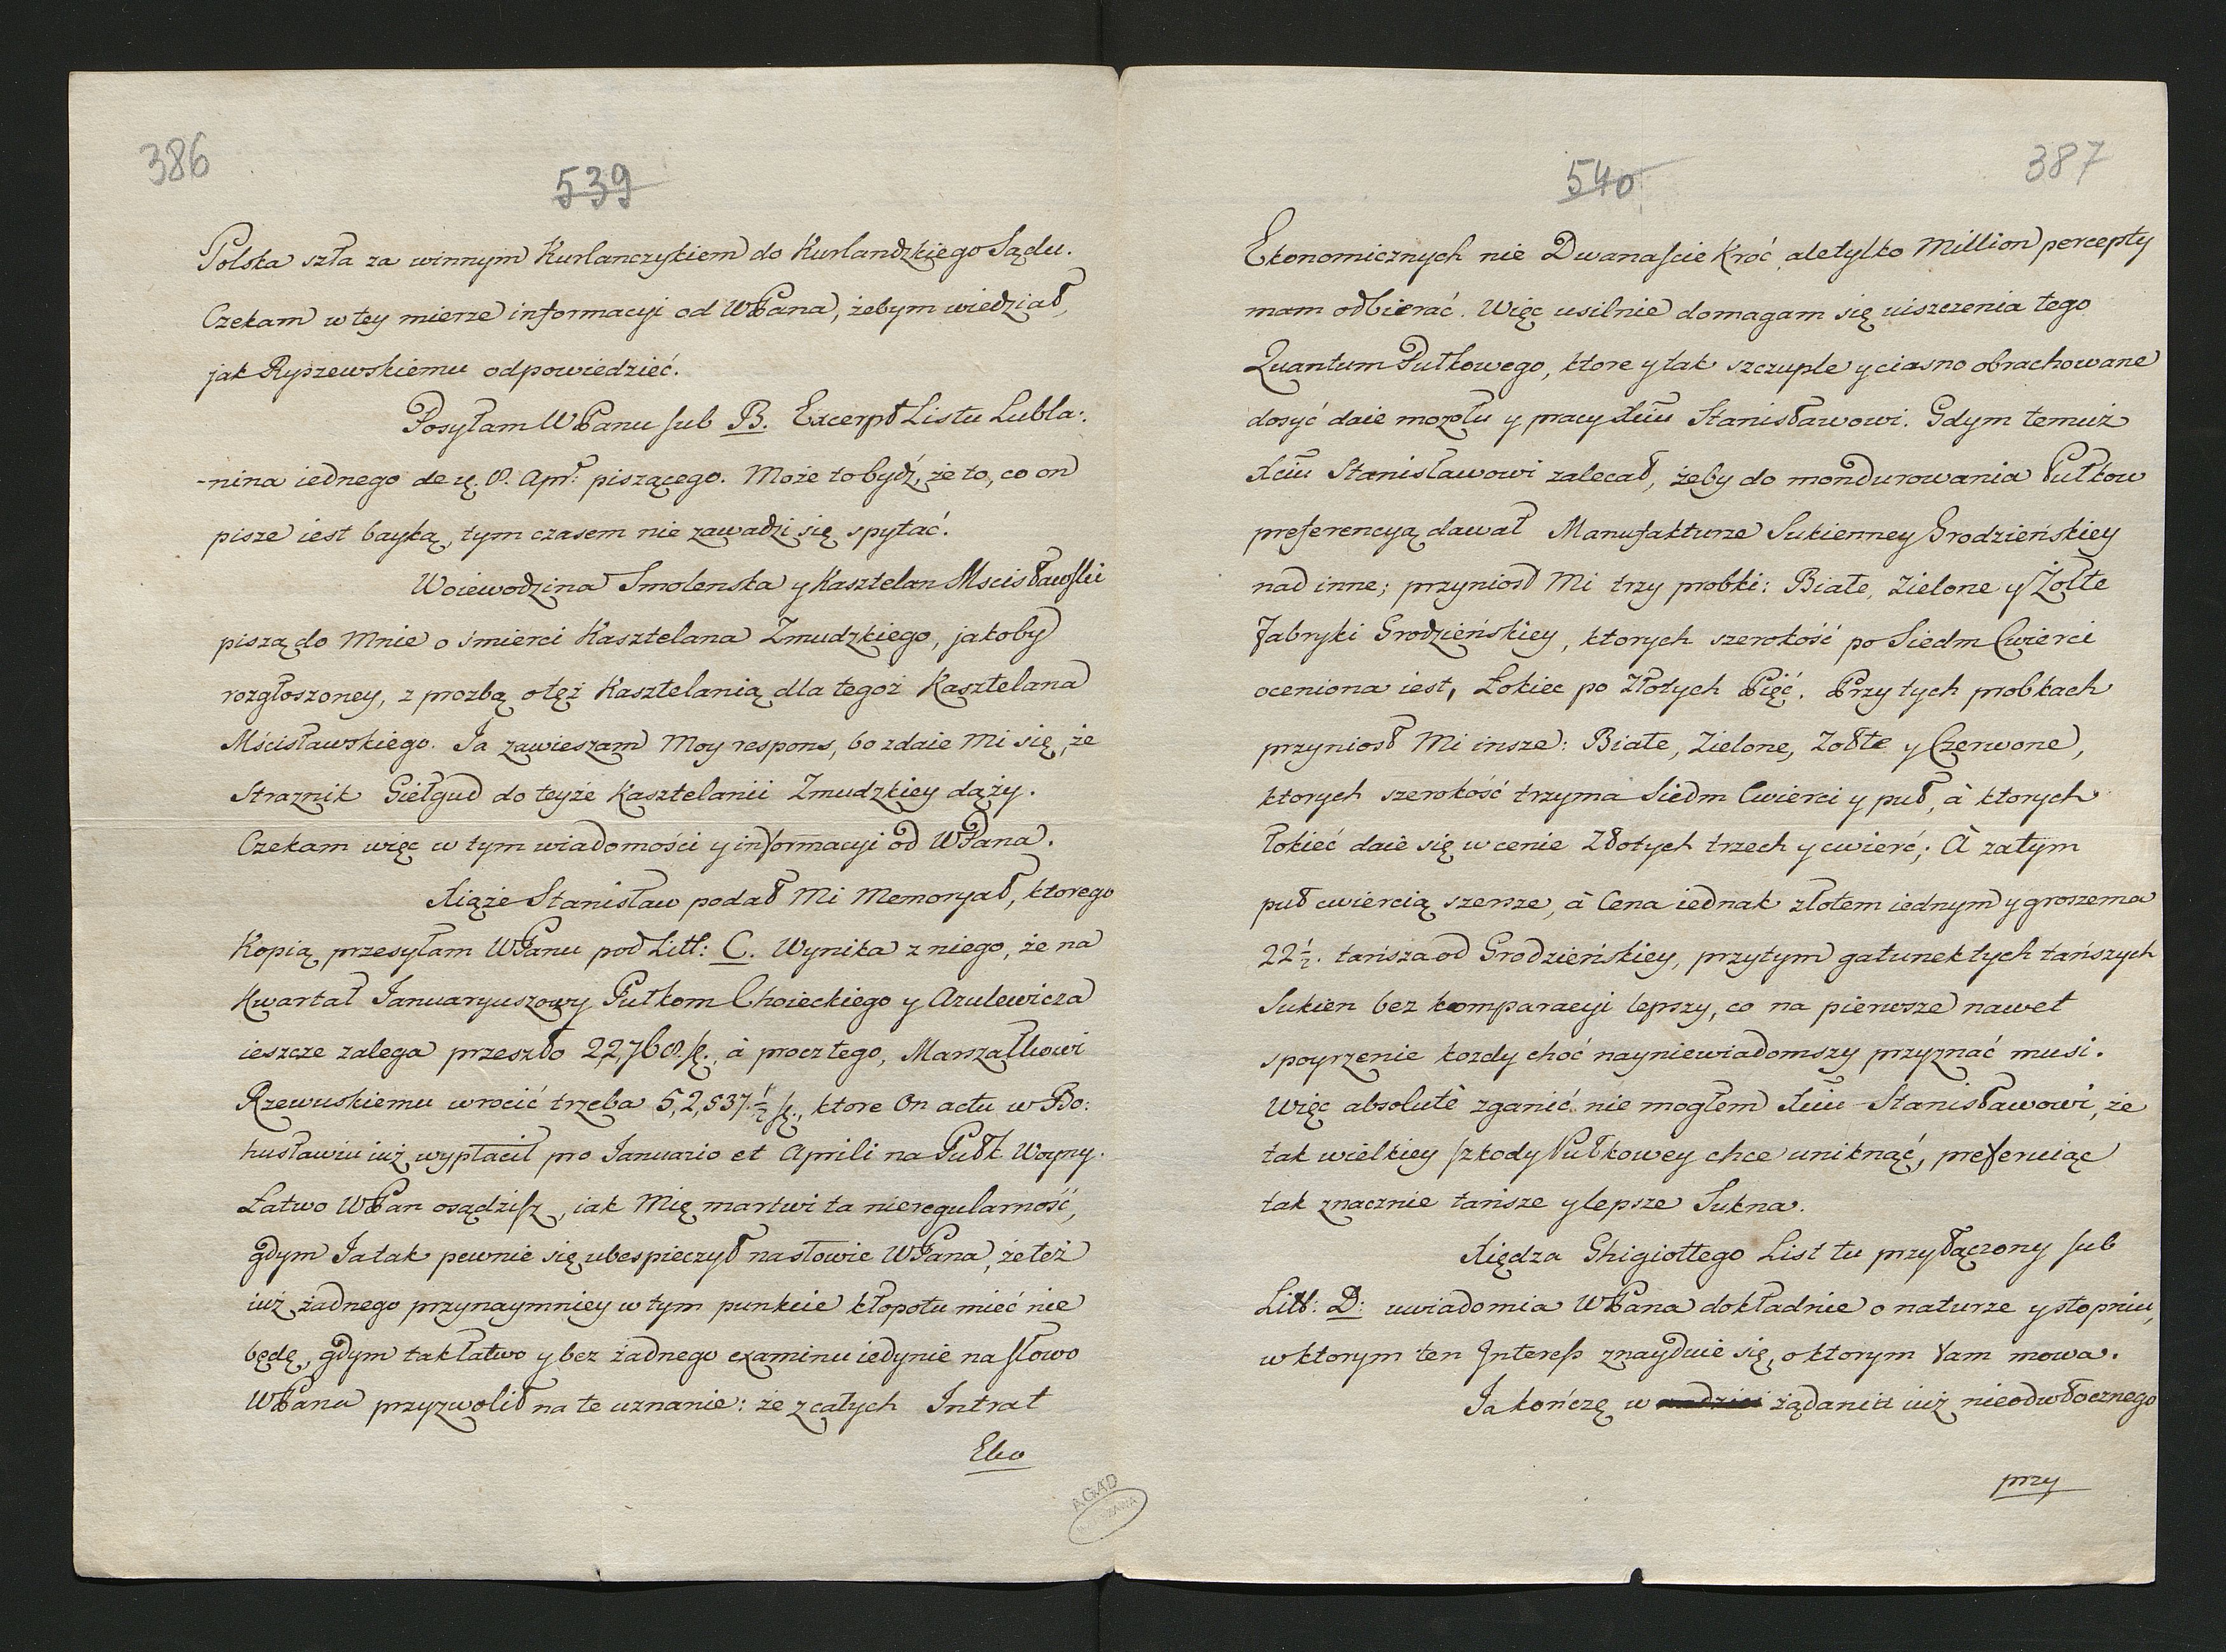 386
539
Polska szła za winnym Kurlanczykiem do Kurlandzkiego Sądu.
Czekam w tey mierze informacyi od WPana, żebym wiedział,
jak Ryszewskiemu odpowiedzieć.
Posyłam WPanu sub B. Excerpt Listu Lubla:
-nina iednego de 8. Apr: piszącego. Może to bydź, że to, co on
pisze iest bayką, tym czasem nie zawadzi się spytać.
Woiewodzina Smolenska y Kasztelan Mscisławski
piszą do Mnie o śmierci Kasztelana Zmudzkiego, jakoby
rozgłoszoney, z prozbą o tęż Kasztelanią dla tegoż Kasztelana
Mścisławskiego. Ja zawieszam Moy respons, bo zdaie Mi się, że
Straznik Giełgud do teyże Kasztelanii Zmudzkiey dąży.
Czekam więc w tym wiadomości y informacyi od WPana.
Xiąże Stanisław podał Mi Memoryał, ktorego
Kopią przesyłam WPanu pod Litt: C. Wynika z niego, że na
Kwartał Januaryuszowy Pułkom Choieckiego y Azulewicza
ieszcze zalega przeszło 22,768. à procz tego, Marszałkowi
Rzewuskiemu wrocić trzeba 52,537 ½ ktore On actu w Bo:
husławiu iuż wypłacił pro Januario et Aprili na Pułk Woyny.
Łatwo WPan osądzisz, iak Mię martwi ta nieregularność,
gdym Ja tak pewnie się ubespieczył na słowie WPana, że też
iuż żadnego przynaymniey w tym punkcie kłopotu mieć nie
będę, gdym tak łatwo y bez żadnego examinu iedynie na słowo
WPana przyzwolił na te uznanie: że z całych Intrat
Eko
AGAD
WARSZAWA
540
387
Ekonomicznych nie Dwanaście Kroć, ale tylko Million percepty
mam odbierać. Więc usilnie domagam się uiszczenia tego
Quantum Pułkowego, ktore y tak szczuple y ciasno obrachowane
dosyć daie mozołu y pracy Xciu Stanisławowi. Gdym temuż
Xciu Stanisławowi zalecał, żeby do mondurowania Pułkow
preferencyą dawał Manufakturze Sukienney Grodzieńskiey
nad inne; przyniosł Mi trzy probki: Białe, Zielone y Żołte
Fabryki Grodzieńskiey, ktorych szerokość po Siedm Cwierci
oceniona iest, Łokiec po Złotych Pięć. Przy tych probkach
przyniosł Mi insze: Białe, Zielone, Zołte y Czerwone,
ktorych szerokość trzyma Siedm Cwierci y puł, à ktorych
Łokieć daie się w cenie Złotych trzech y cwierć; à zatym
puł cwiercią szersze, à Cena iednak złotem iednym y groszema
22 ½. tańsza od Grodzieńskiey, przytym gatunek tych tańszych
Sukien bez komparacyi lepszy, co na pierwsze nawet
spoyrzenie kozdy choć nayniewiadomszy przyznać musi.
Więc absolutè zganić nie mogłem Xciu Stanisławowi, że
tak wielkiey szkody Pułkowey chce uniknąć, preferuiąc
tak znacznie tańsze y lepsze Sukna.
Xiędza Ghigiottego List tu przyłączony sub
Litt: D: uwiadomia WPana dokładnie o naturze y stopniu,
w ktorym ten Interess znayduie się, o ktorym tam mowa.
Ja kończę w żądaniu iuż nieodwłocznego
przy